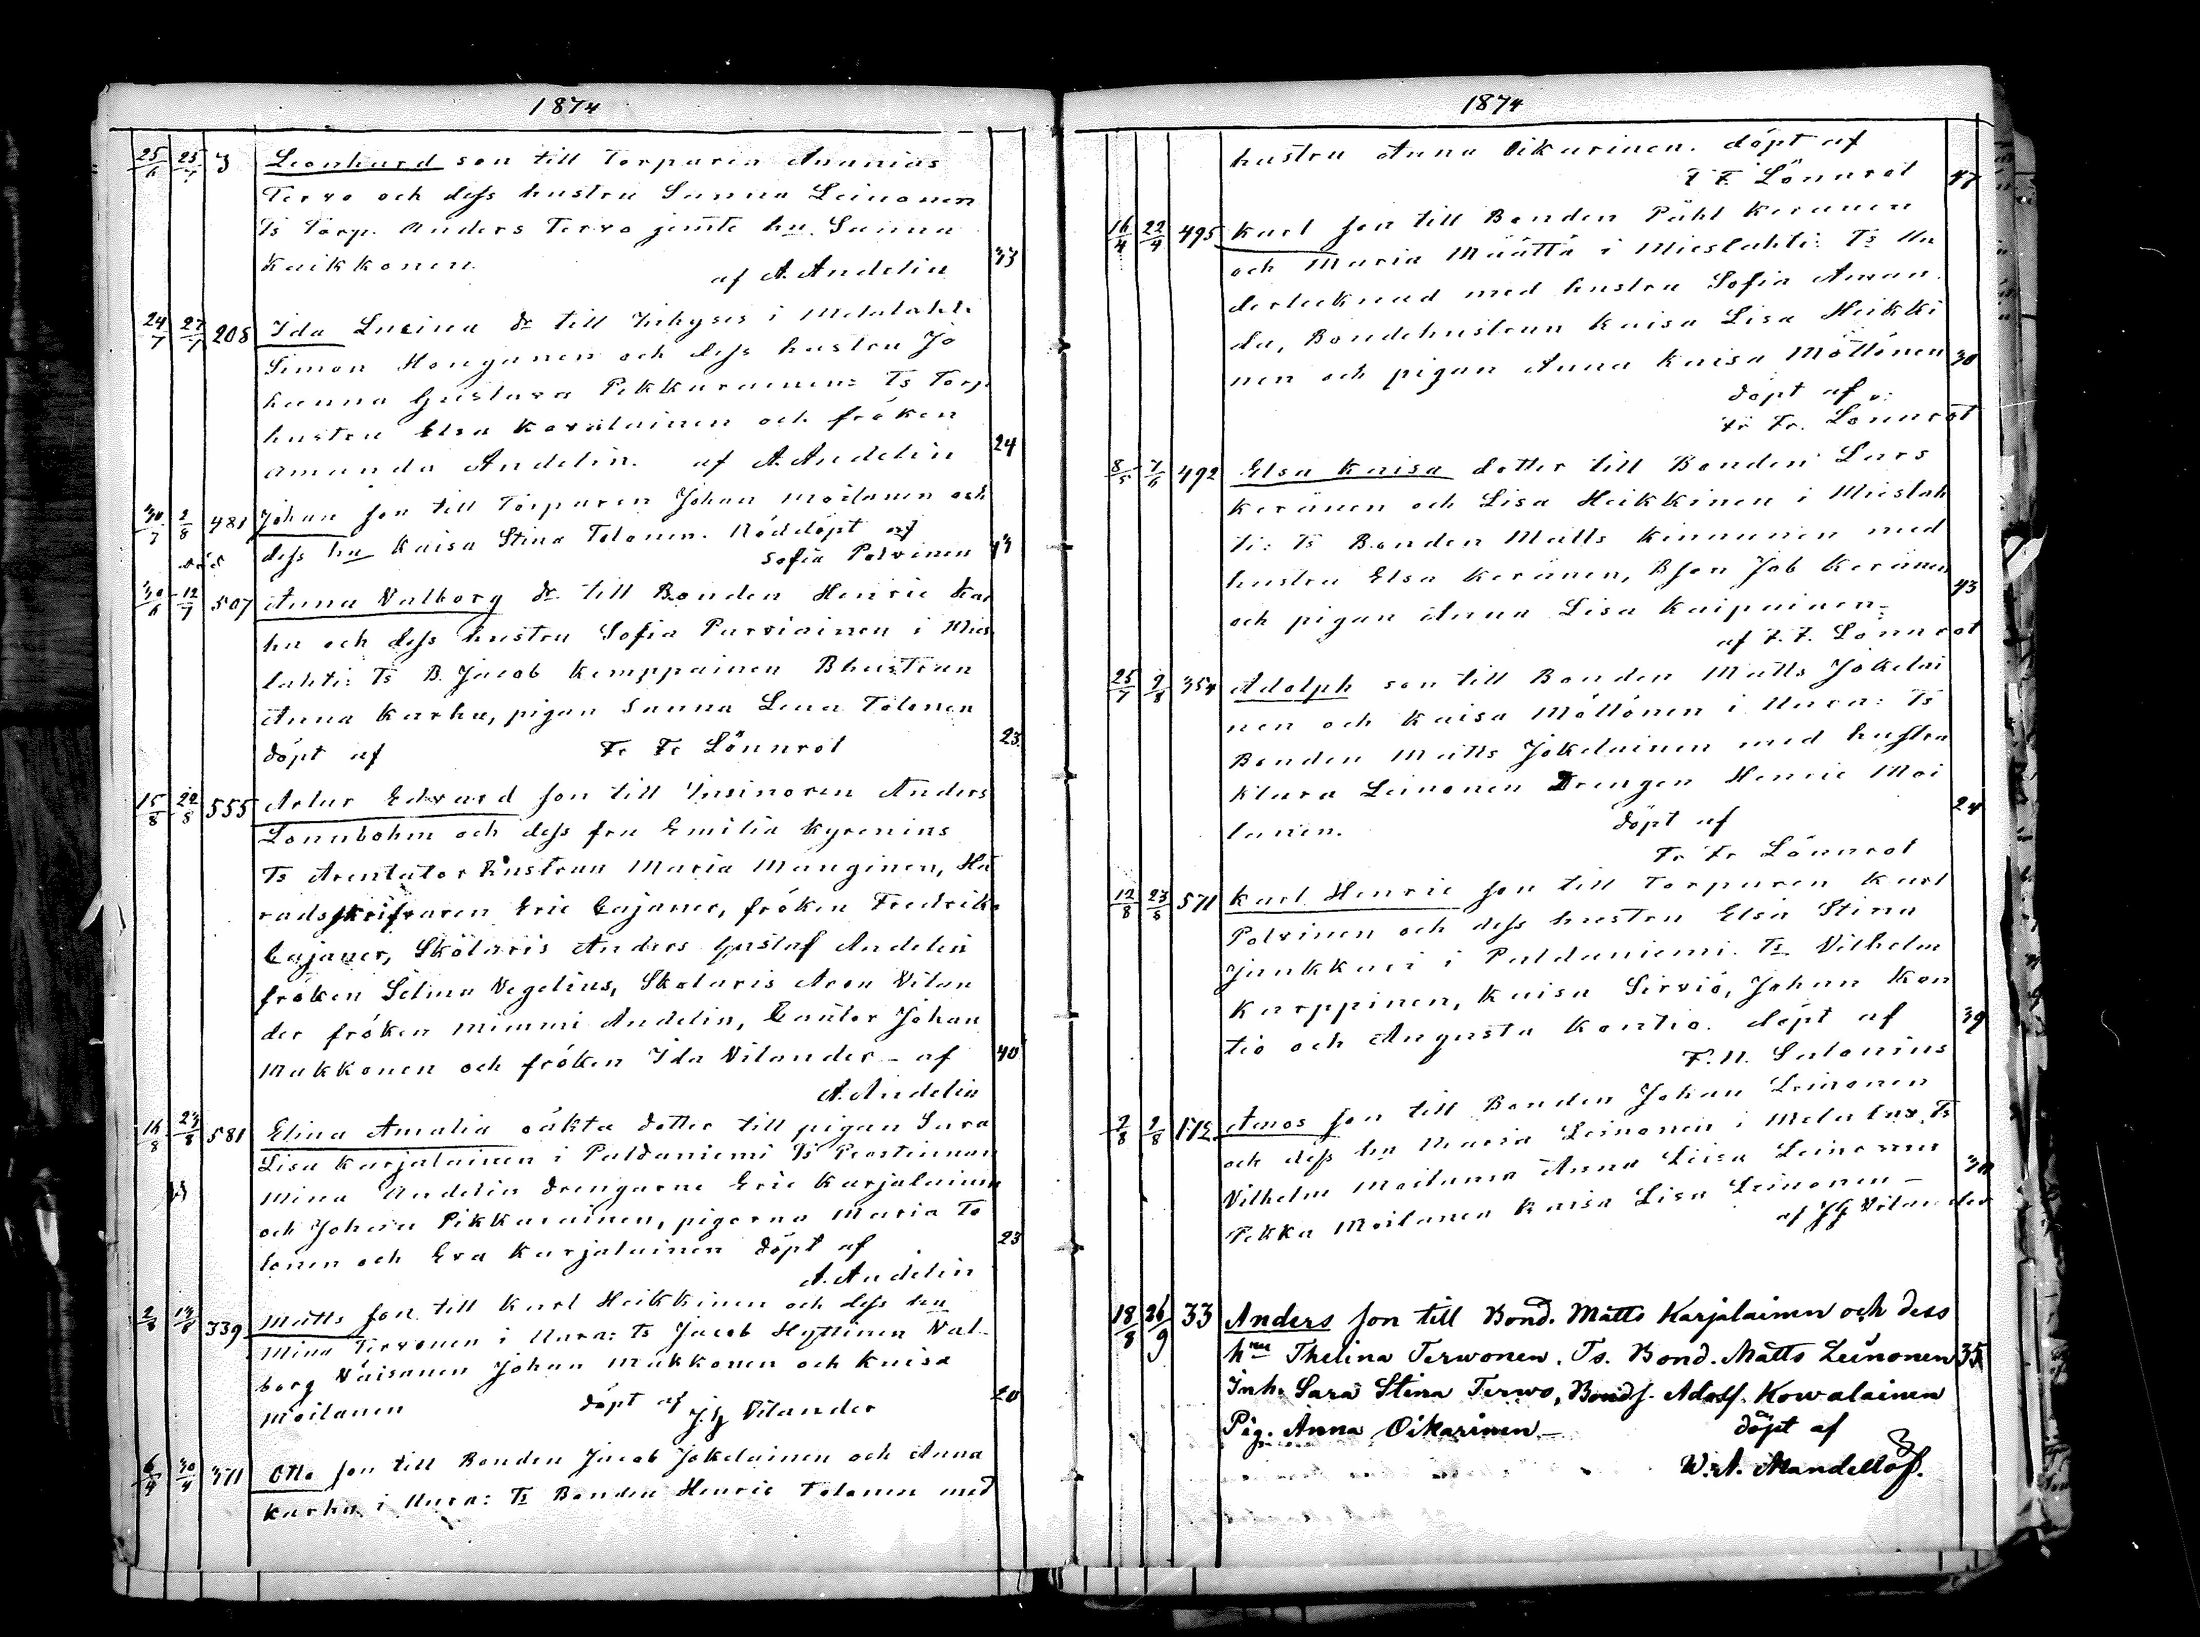 1874
25/6 25/7 3 Leonhard son till Torparen Ananias
Tervo och dess hustru Sanna Leinonen
Ts Torp. Anders Tervo jemte hu. Sanna
Kaikkonen. af A. Andelin 33
24/7 27/7 208 Ida Lusina dr till Inhyses i Melalahti
Simon Honganen och dess hustru Jo
hanna Gustava Pikkarainen: Ts Torp
hustru Elsa Kovalainen och fröken
Amanda Andelin. af A. Andelin 24
30/7 2/8 481 Johan son till Torparen Johan Moilanen och
dess hu Kaisa Stina Tolonen. Nöddöpt af
Sofia Polvinen
30/6 12/7 507 Anna Valborg dr till Bonden Henric Kar
hu och dess hustru Sofia Parviainen i Mies
lahti: Ts B. Jacob Kemppainen Bhustrun
Anna Karhu, pigan Sanna Lena Tolonen
döpt af Fr Fr Lönnrot 23
15/8 22/8 555 Artur Edvard son till Insinören Anders
Lönnbohm och dess fru Emilia Kyrenius
Ts Arentatorhustrun Maria Manginen, Hä
radsskrifvaren Eric Cajaner, fröken Fredrika
Cajaner, Skolaris Anders Gustaf Andelin
fröken Selma Vegelius, Skolaris Aron Vilan
der fröken Mimmi Andelin, Cantor Johan
Makkonen och fröken Ida Vilander - af 40
A. Andelin
16/8 23/8 581 Elina Amalia oäkta dotter till pigan Sara
Lisa Karjalainen i Paldaniemi Ts Prostinnan
Mina Andelin drengarne Eric Karjalainen
och Johan Pikkarainen, pigorna Maria To
lonen och Eva Karjalainen döpt af 23
A. Andelin
2/8 14/8 339 Matts son till Karl Heikkinen och dess hu
Mina Tervonen i Uura: Ts Jacob Hyttinen Val-
borg Väisänen Johan Makkonen och Kaisa
Moilanen döpt af J.G Vilander 20
6/4 30/4 371 Otto son till Bonden Jacob Jokelainen och Anna
Karhu i Uura: Ts Bonden Henric Tolonen med
1874
hustru Anna Oikarinen. döpt af
F F. Lönnrot 47
16/4 22/4 495 Karl son till Bonden Påhl Keranen
och Maria Määttä i Mieslahti: Ts Un
dertecknad med hustru Sofia Aman
da, Bondehustrun Kaisa Lisa Heikki
nen och pigan Anna Kaisa Möttönen 30
döpt af
Fr Fr. Lönnrot
8/5 7/6 492 Elsa Kaisa dotter till Bonden Lars
Keränen och Lisa Heikkinen i Mieslah
ti: Ts Bonden Matts Kinnunen med
hustru Elsa Keränen, Bson Job Keränen
och pigan Anna Lisa Kaipainen- 43
af F. F. Lönnrot
25/7 2/8 354 Adolph son till Bonden Matts Jokelai
nen och Kaisa Möttönen i Uura: Ts
Bonden Matts Jokelainen med hustru
Klara Leinonen Drengen Henric Moi
lanen. döpt af 24
Fr Fr Lönnrot
12/8 23/8 571 Karl Henric son till Torparen Karl
Polvinen och dess hustru Elsa Stina
Junkkari i Paldaniemi. Ts Vilhelm
Karppinen, Kaisa Sirviö, Johan Kon
tio och Augusta Kontio. döpt af 39
F. N. Salonius
2/8 2/8 172 Amos son till Bonden Johan Leinonen
och dess hu Maria Leinonen i Melalax. Ts
Vilhelm Moilanen Anna Liisa Leinonen
Pekka Moilanen Kaisa Lisa Leinonen -
af JG Vilander
18/8 26/9 33 Anders son till Bond. Matts Karjalainen och dess
hru Thelina Terwonen. Ts. Bond. Matts Leinonen 35
Inh. Sara Stina Terwo, Bonds. Adolf. Kowalainen
Pig. Anna Oikarinen - döpt af
W. A. Mandellöf.